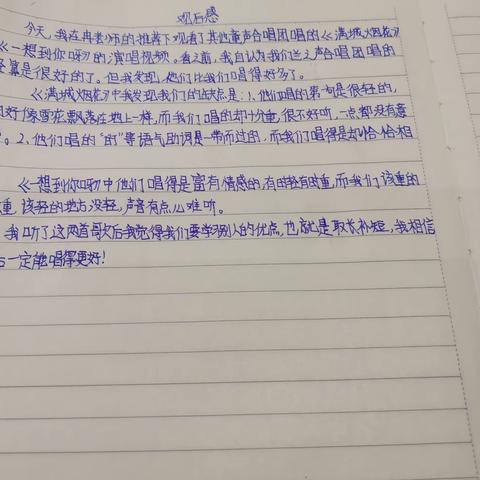 观后感
今天,我在冉老师的推荐下观看了其他童声合唱团唱的《满城烟花》
《一想到你呀》的演唱视频。看之前,我自认为我们兰之声合唱团唱的
是很好的了。但我发现,他们比我们唱得好多了。
《满城烟花》中我发现我们的缺点是:1.他们唱的第一句是很轻的,
好像雪花飘落在地上一样,而我们唱的却十分重,很不好听,一点都没有意
。2.他们唱的“的”等语气助词是一带而过的,而我们唱得是却恰恰相
《一想到你呀》中他们唱得是富有情感的,有时轻有时重,而我们该重的
重,该轻的地方没轻,声音有点儿难听。
我听了这两首歌后我觉得我们要学习别人的优点,也就是取长补短,我相信
一定能唱得更好!